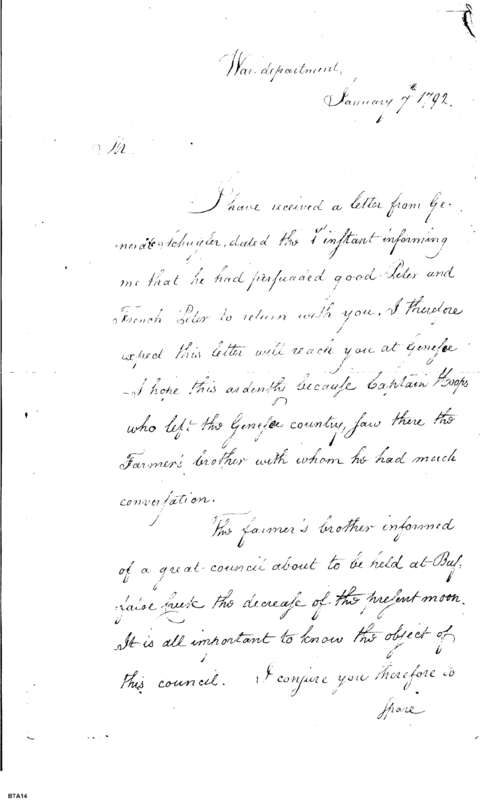 War department,
January 7th 1792.
Sir
I have received a letter from Ge-
neral Schuyler, dated the 1st instant informing
me that he had persuaded good Peter and
French Peter to return with you. I therefore
expect this letter will reach you at Genesee
- I hope this ardently because Captain Hoops
who left the Genesee country, saw there the
Farmer's brother with whom he had much
conversation.
The farmer's brother informed
of a great council about to be held at Buf-
faloe Creek the decrease of the present moon.
It is all important to know the object of
this council. I conjure you therefore to
spare
BTA14